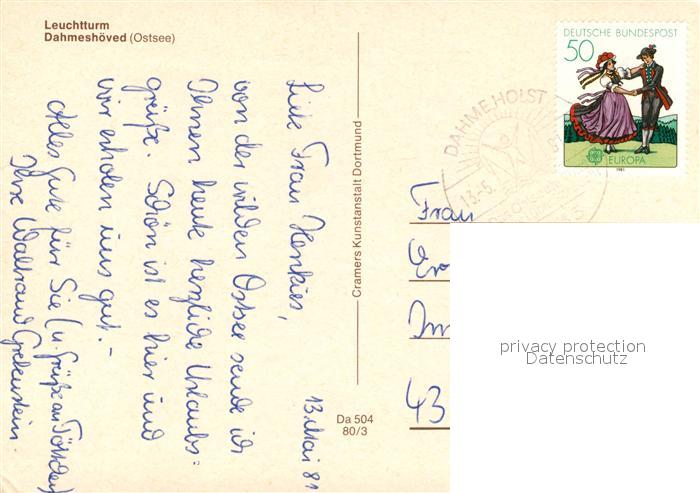 Leuchtturm
Dahmeshöved (Ostsee)
13. Mai 81
Liebe Frau Henkies,
von der wilden Ostsee sende ich
Ihnen heute herzliche Urlaubs-
grüße. Schön ist es hier und
wir erholen uns gut. –
Alles Gute für Sie (u. Grüße an
Ihre Waltraud
Cramers Kunstanstalt Dortmund
Da 504
80/3
DEUTSCHE BUNDESPOST
50
EUROPA
1981
DAHME HOLST
13.-5.
Frau
43
privacy protection
Datenschutz